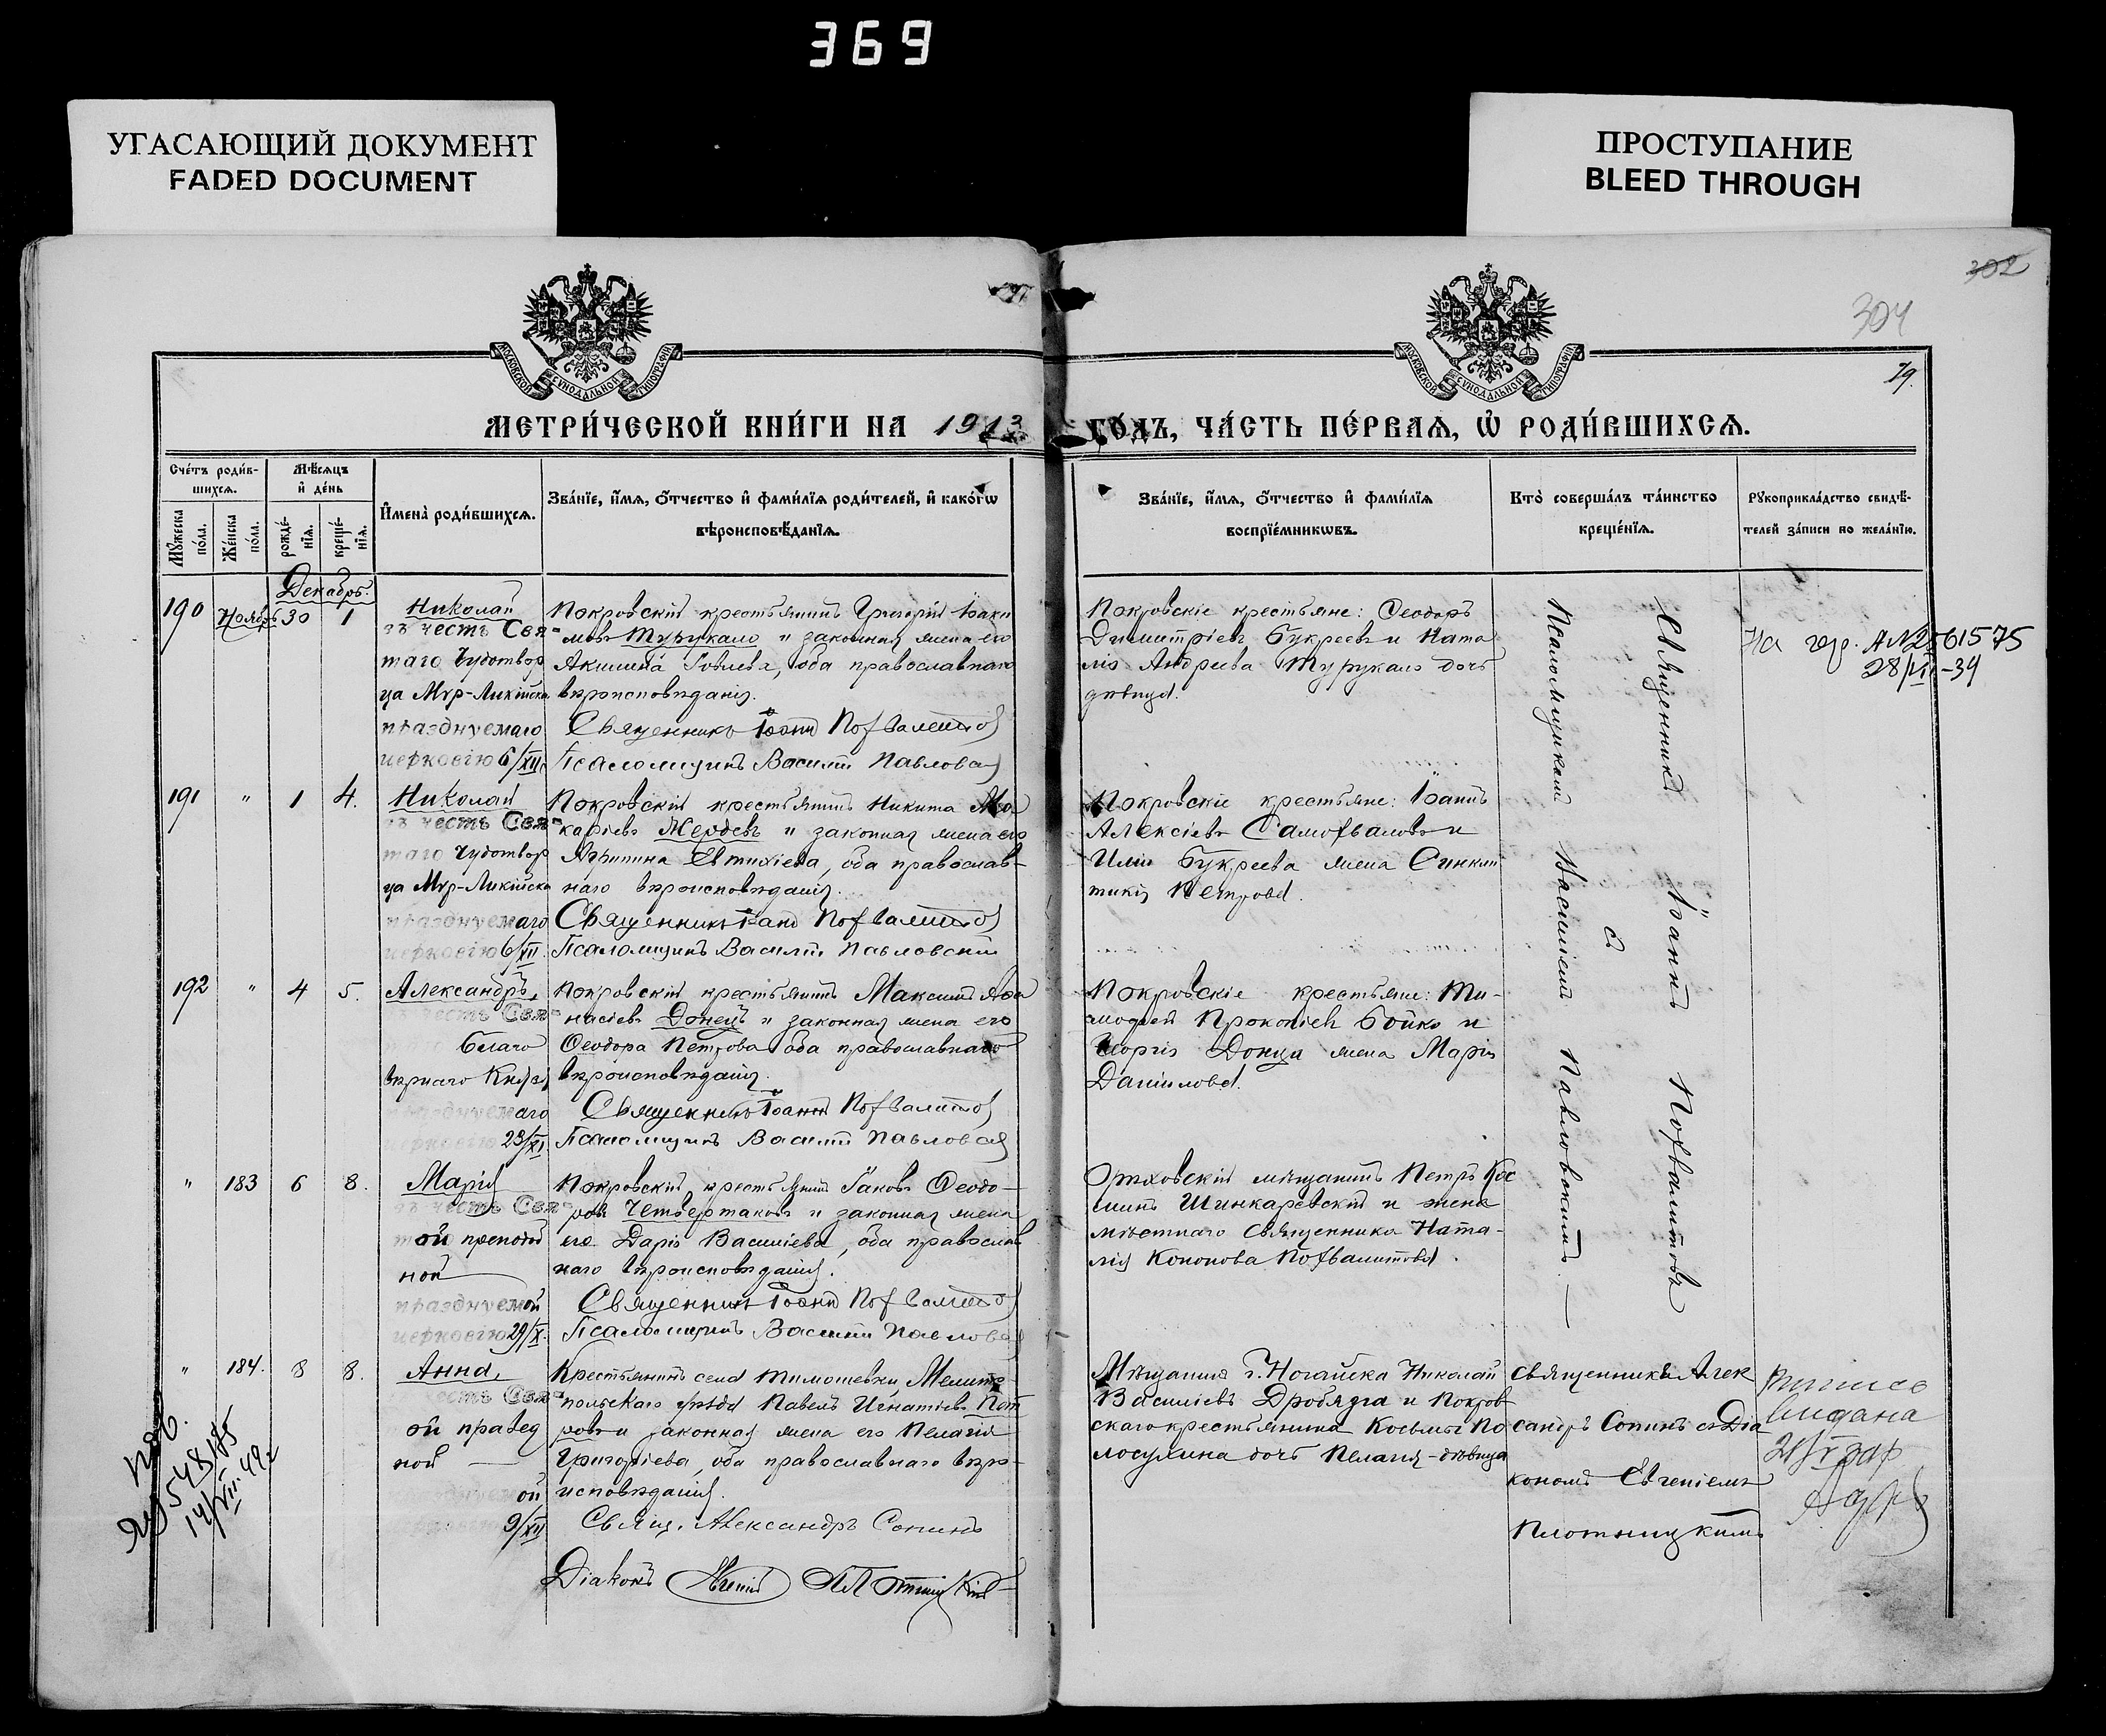 369
УГАСАЮЩИЙ ДОКУМЕНТ
FADED DOCUMENT
ПРОСТУПАНИЕ
BLEED THROUGH
302
304
79.
МОСКОВСКОЙ СУНОДАЛЬНОЙ ТИПОГРАФІИ
МОСКОВСКОЙ СУНОДАЛЬНОЙ ТИПОГРАФІИ
МЕТРИ́ЧЕСКОЙ КНИ́ГИ НА 1913 ГО́ДЪ, ЧА́СТЬ ПЕ́РВАѦ, Ѡ҆ РОДИ́ВШИХСѦ.
Сче́тъ роди́в-
шихсѧ.
Мꙋ́жеска по́ла.
Же́нска по́ла.
Мѣ́сѧцъ
и҆ де́нь
рожде́-
нїѧ.
креще́-
нїѧ.
И҆мена̀ роди́вшихсѧ.
Зва́нїе, и҆́мѧ, ѻ҆́тчество и҆ фами́лїѧ роди́телей, и҆ како́гѡ
вѣроисповѣ́данїѧ.
Зва́нїе, и҆́мѧ, ѻ҆́тчество и҆ фами́лїѧ
воспрїе́мникѡвъ.
Кто̀ соверша́лъ та́инство
креще́нїѧ.
Рꙋкоприкла́дство свидѣ́-
телей за́писи по жела́нїю.
Декабрь.
190 Ноябрь 30 1
Николай
въ честь Свя-
таго Чудотвор
ца Мѵр-Ликійска
празднуемаго
церковію 6/XII
Покровскій крестьянинъ Григорій Іоаки
мовъ Турукало и законная жена его
Акилина , оба православнаго
вѣроисповѣданія.
Священникъ Іоаннъ Похвалитов
Псаломщикъ Василій Павловс
Покровскіе крестьяне: Ѳеодоръ
Димитріевъ Букреевъ и Ната
лія Андреева Турукало дочь
дѣвица.
На гр. АN2561575
28/VI-34
191 " 1 4.
Николай
въ честь Свя-
таго Чудотвор
ца Мѵр-Ликійска
празднуемаго
церковію 6/XII.
Покровскій крестьянинъ Никита Ма
каріевъ Жердевъ и законная жена его
Агрипина Евтихіева, оба православ-
наго вѣроисповѣданія.
Священникъ Іоаннъ Похвалитов
Псаломщикъ Василій Павловскій
Покровскіе крестьяне: Іоаннъ
Алексіевъ Самохваловъ и
Иліи Букреева жена Синкли
тикія Петрова.
192 " 4 5.
Александръ,
въ честь Свя-
Благо
вѣрнаго Князя
празднуемаго
церковію 23/XI
Покровскій крестьянинъ Максимъ Аѳа
насіевъ Донецъ и законная жена его
Ѳеодора Петрова оба православнаго
вѣроисповѣданія.
Священникъ Іоаннъ Похвалитов
Псаломщикъ Василій Павловск
Покровскіе крестьяне: Ти-
моѳей Прокопіевъ Бойко и
Георгія Донца жена Марія
Даніилова.
" 183 6 8.
Марія
въ честь Свя-
той преподоб
ной
празднуемой
церковію 29/X.
Покровскій крестьянинъ Іаковъ Ѳеодо-
ровъ Четвертаковъ и законная жена
его Дарія Василіева, оба православ
наго вѣроисповѣданія.
Священникъ Іоаннъ Похвалитов
Псаломщикъ Василій Павловс
Орѣховскій мѣщанинъ Петръ Кос
минъ Шинкаревскій и жена
мѣстнаго Священника Ната-
лія Кононова Похвалитова.
Священникъ Іоаннъ Похвалитовъ
съ
Псаломщикомъ Василіемъ Павловскимъ.
" 184. 8 8.
Анна,
честь Свя-
ой правед
ной
празднуемой
9/XII
Крестьянинъ села Тимошевки, Мелито
польскаго уѣзда Павелъ Игнатіевъ Пет
ровъ и законная жена его Пелагія
Григоріева, оба православнаго вѣро-
исповѣданія.
Свящ. Александръ Сопинъ
Діаконъ Евгеній Плотницкій
Мѣщанинъ г. Ногайска Николай
Василіевъ Дробязга и Покров
скаго крестьянина Косьмы По
лосухина дочь Пелагія-дѣвица
Священникъ Алек
сандръ Сопинъ съ Діа
кономъ Евгеніемъ
Плотницкимъ
видана
548185
14/VIII 49г